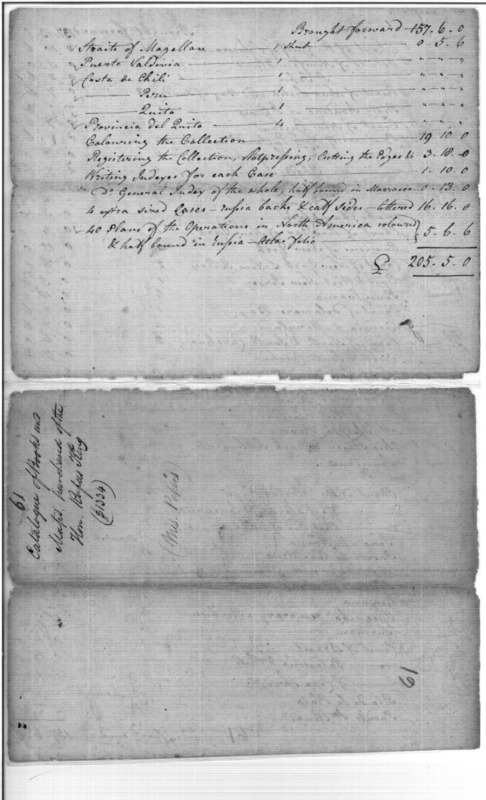 Brought forward 157. 6. 0
Straits of Magellan 1 Sheet 0. 5. 6
Puerto Valdivia 1 " " "
Costa de Chili 1 " " "
Peru 1 " " "
Quito 1 " " "
Provincia del Quito 4 " " "
Colouring the Collection 19. 10. 0
Registering the Collection, Hotpressing, Cutting the Edges &c 3. 18. 0
Writing Indexes for each Case 1. 10. 0
Do General Index of the whole, half bound in Morocco 0. 13. 0
4 extra sized Cases - russia backs & calf sides - lettered 16. 16. 0
40 Plans of the Operations in North America coloured
& half bound in russia - Atlas folio } 5. 6. 6
£ 205. 5. 0
61
Catalogue of Books and
Maps, purchased of the
Hon. Rufus King
(31334)
61